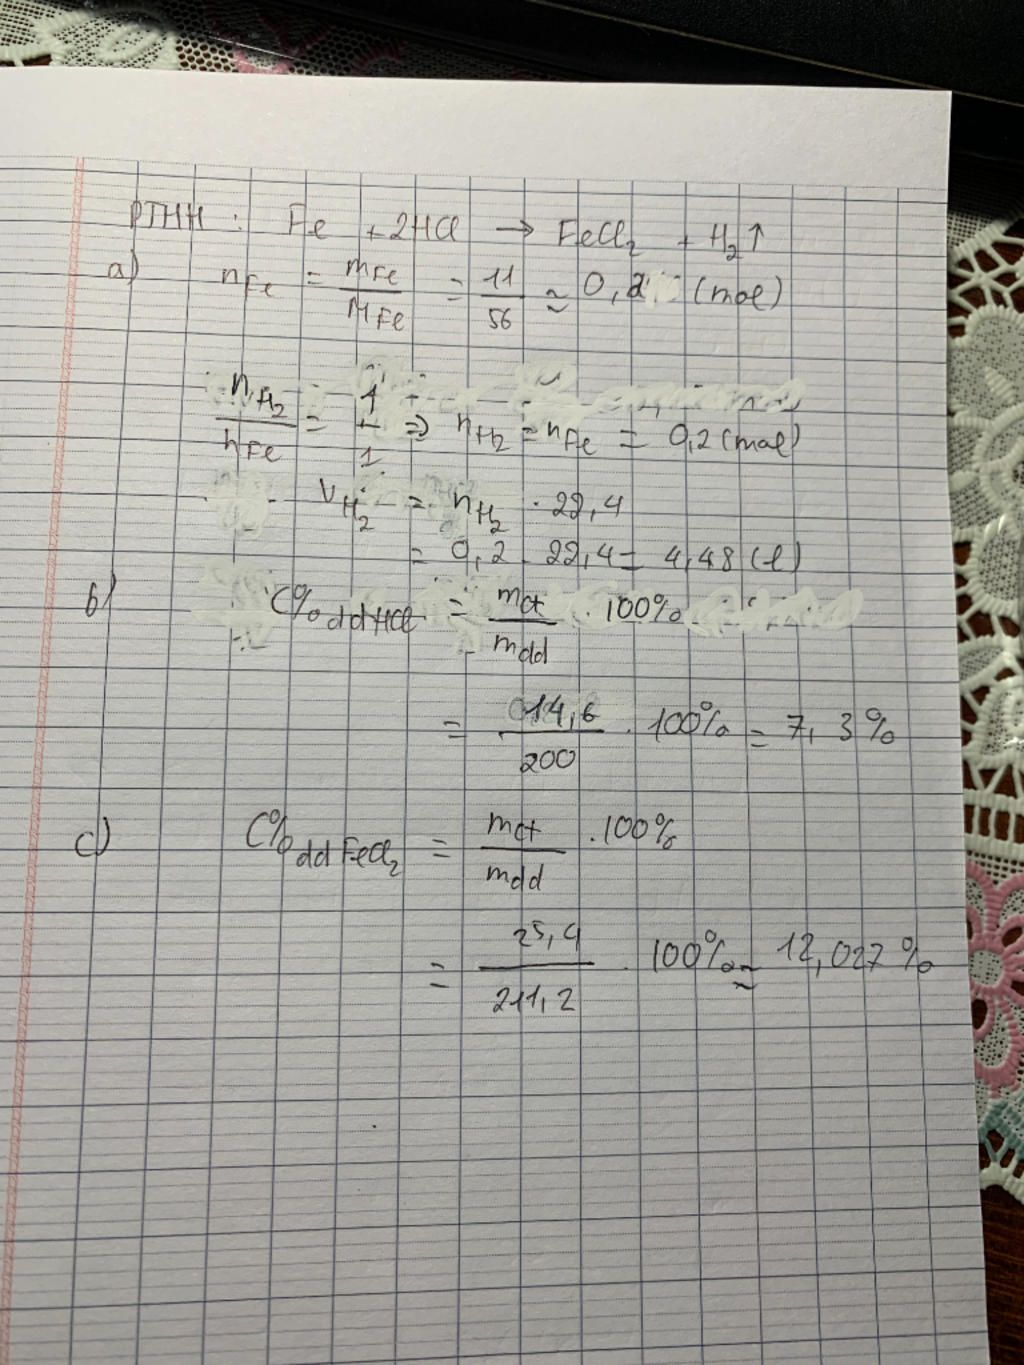 PTHH : Fe + 2HCl → FeCl₂ + H₂↑
a) nFe = mFe/MFe = 11/56 ≈ 0,2 (mol)
nH₂/nFe = 1/1 => nH₂ = nFe = 0,2 (mol)
VH₂ = nH₂ . 22,4
= 0,2 . 22,4 = 4,48 (l)
b) C%ddHCl = mct/mdd . 100%
= 14,6/200 . 100% = 7,3%
c) C%ddFeCl₂ = mct/mdd . 100%
= 25,4/211,2 . 100% ≈ 12,027%